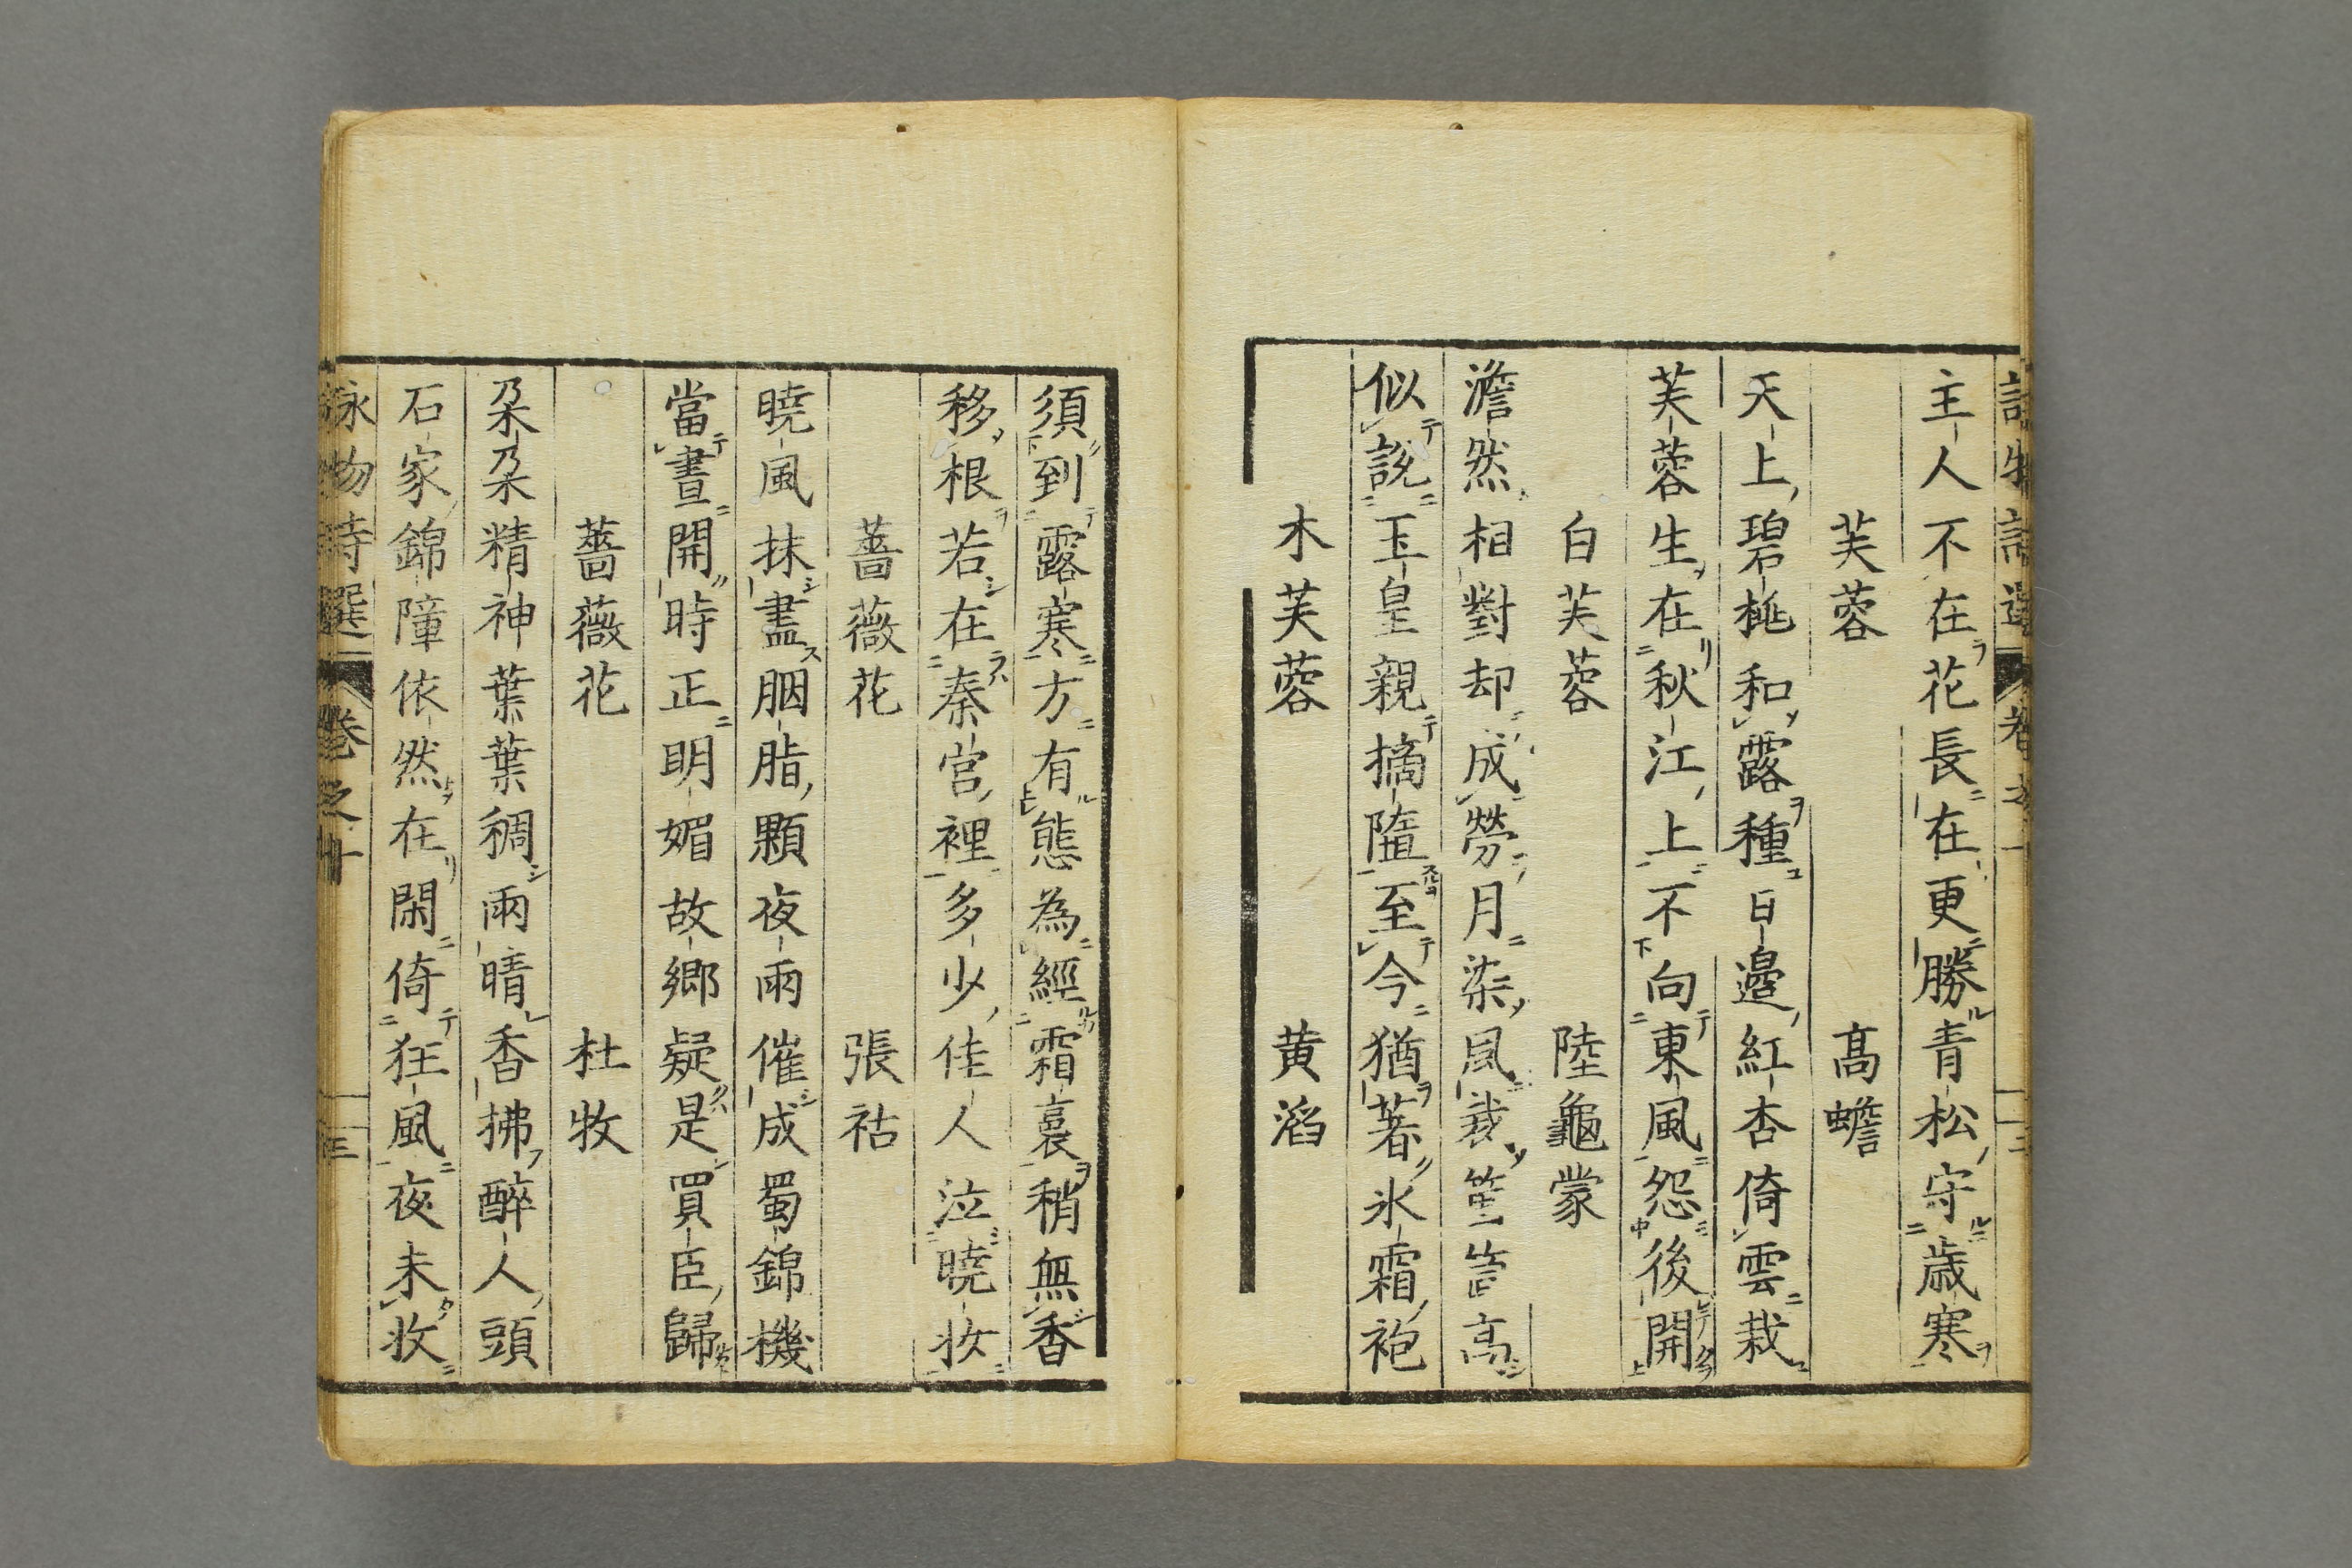 主人不在花長在更勝青松守歳寒
芙蓉 高蟾
天上碧桃和露種日邉紅杏倚雲栽
芙蓉生在秋江上不向東風怨後開
白芙蓉 陸龜蒙
澹然相對却成勞月染風裁箇箇高
似說玉皇親摘隨至今猶著氷霜袍
木芙蓉 黄滔
須到露寒方有態為經霜裛稍無香
移根若在秦宮裡多少佳人泣曉妆
薔薇花 張祜
曉風抹盡胭脂顆夜雨催成蜀錦機
當晝開時正明媚故郷疑是買臣歸
薔薇花 杜牧
朶朶精神葉葉稠雨晴香拂醉人頭
石家錦障依然在閑倚狂風夜未收
詠物詩選 卷之十 三